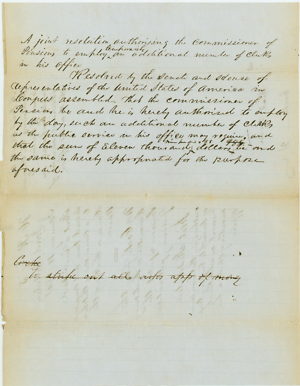 A joint resolution authorizing the Commissioner of
Pensions to employ temporarily an additional number of Clerks
in his office
Resolved by the Senate and House of
Representatives of the United States of America in
Congress assembled, That the commissioner of
Pensions be and he is hereby authorized to employ
by the day, such an additional number of Clerks
as the public service in his office may require, and
that the sum of eleven thousand dollars and
the same is hereby appropriated for the purpose
aforesaid.
To strike out all after appr of money